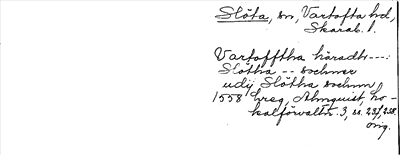 Slöta, sn, Vartofta hd,
Skarab. l.
Vartofftha häradt ---:
Slötha -- sochner
udij Slötha sochnn
1558 hreg, Almquist, Lo-
kalförvaltn. 3, ss. 237, 238.
orig.